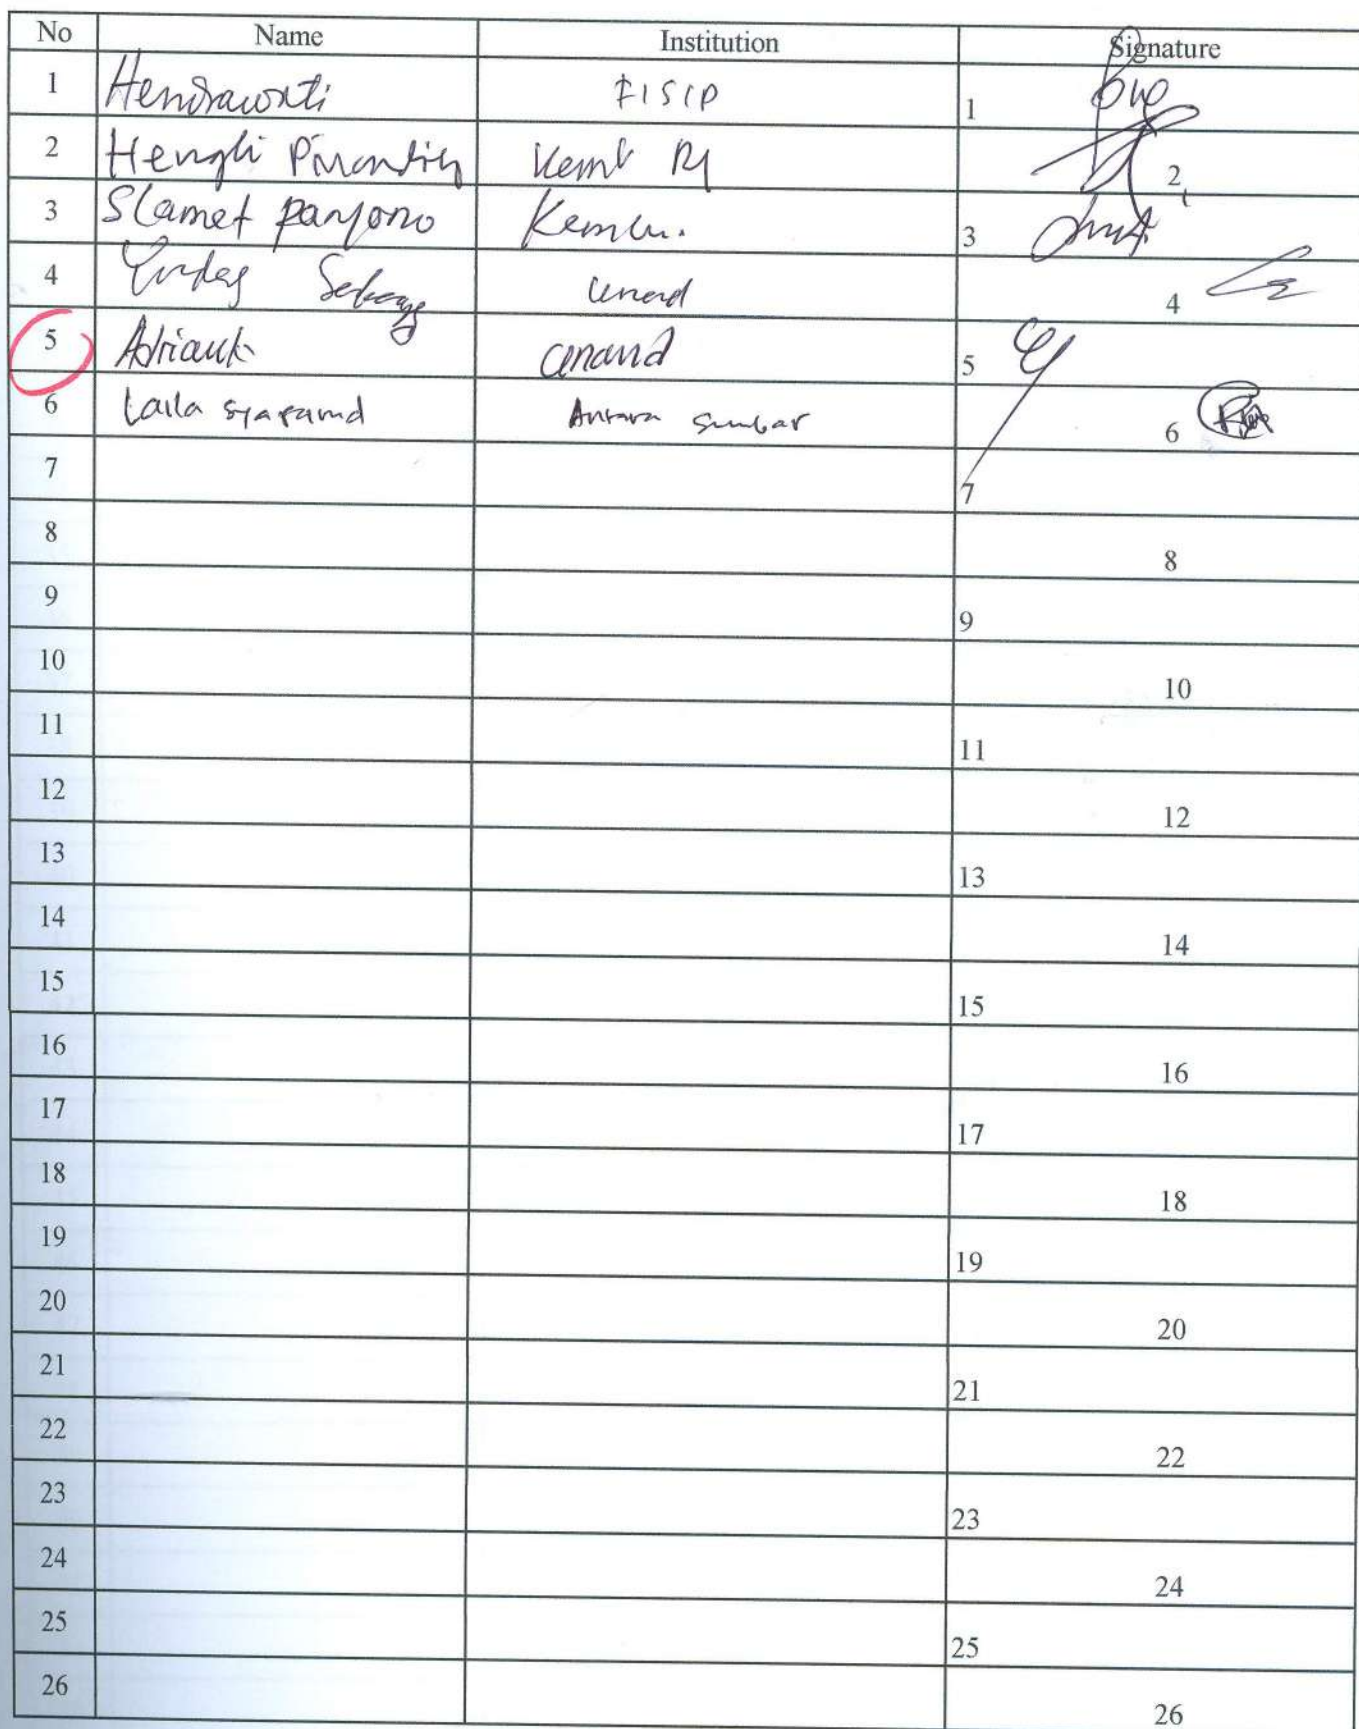 No Name Institution Signature
1 Hendrawati FISIP 1
2 Hengki 2
3 Slamet Paryono Kemlu. 3
4 Unand 4
5 Unand 5
6 Laila Antara Sumbar 6
7 7
8 8
9 9
10 10
11 11
12 12
13 13
14 14
15 15
16 16
17 17
18 18
19 19
20 20
21 21
22 22
23 23
24 24
25 25
26 26